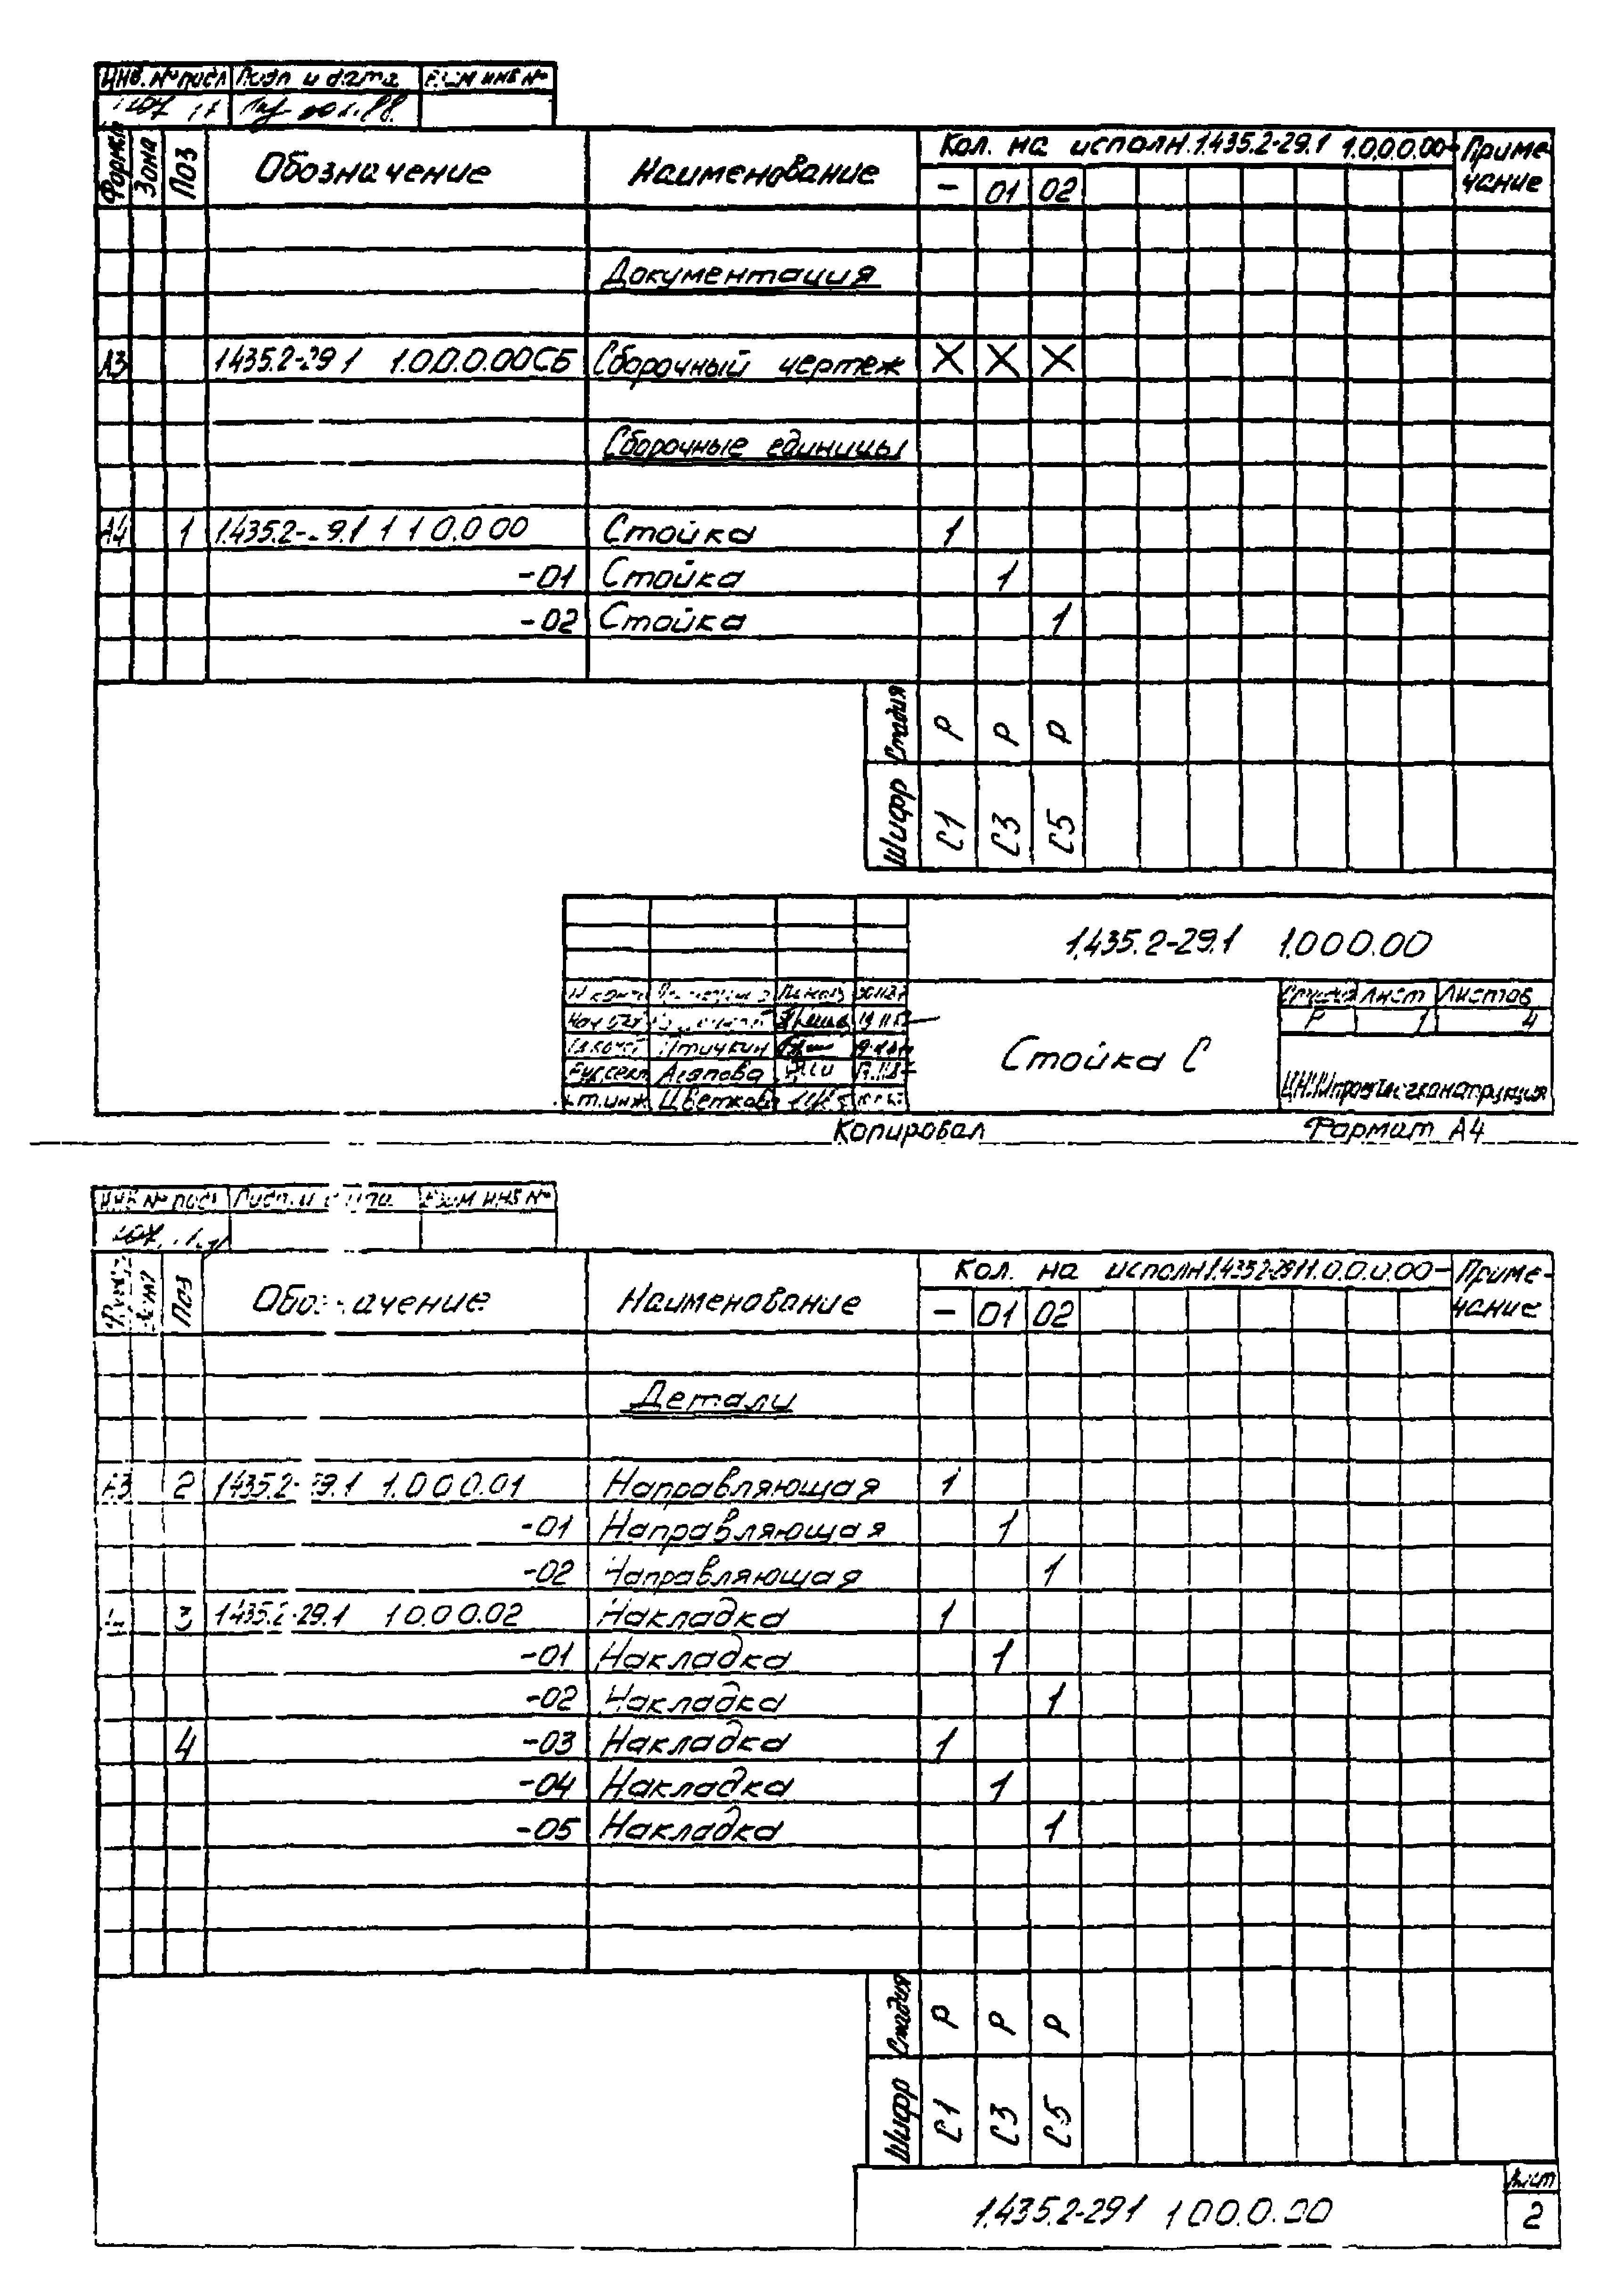 Инв. № подл Подп и дата Взам инв №
Формат Зона Поз Обозначение Наименование Кол. на исполн. 1.435.2-29.1 1.0.0.0.00- Приме-
чание
- 01 02
Документация
А3 1.435.2-29.1 1.0.0.0.00СБ Сборочный чертеж X X X
Сборочные единицы
А4 1 1.435.2-29.1 1 1 0.0.00 Стойка 1
-01 Стойка 1
-02 Стойка 1
Стадия Р Р Р
Шифр С1 С3 С5
1.435.2-29.1 1.0.0.0.00
Птичкин
Рук.сект Агапова
Ст.инж Цветкова
Стойка С
Стадия Лист Листов
Р 1 4
ЦНИИпроектлегконструкция
Копировал Формат А4
Инв № подл Подп. и дата Взам инв №
Поз Обозначение Наименование Кол. на исполн 1.435.2-29.1 1.0.0.0.00- Приме-
чание
- 01 02
Детали
А3 2 1.435.2-29.1 1.0.0.0.01 Направляющая 1
-01 Направляющая 1
-02 Направляющая 1
3 1.435.2-29.1 1.0.0.0.02 Накладка 1
-01 Накладка 1
-02 Накладка 1
4 -03 Накладка 1
-04 Накладка 1
-05 Накладка 1
Стадия Р Р Р
Шифр С1 С3 С5
1.435.2-29.1 1.0.0.0.00
Лист
2